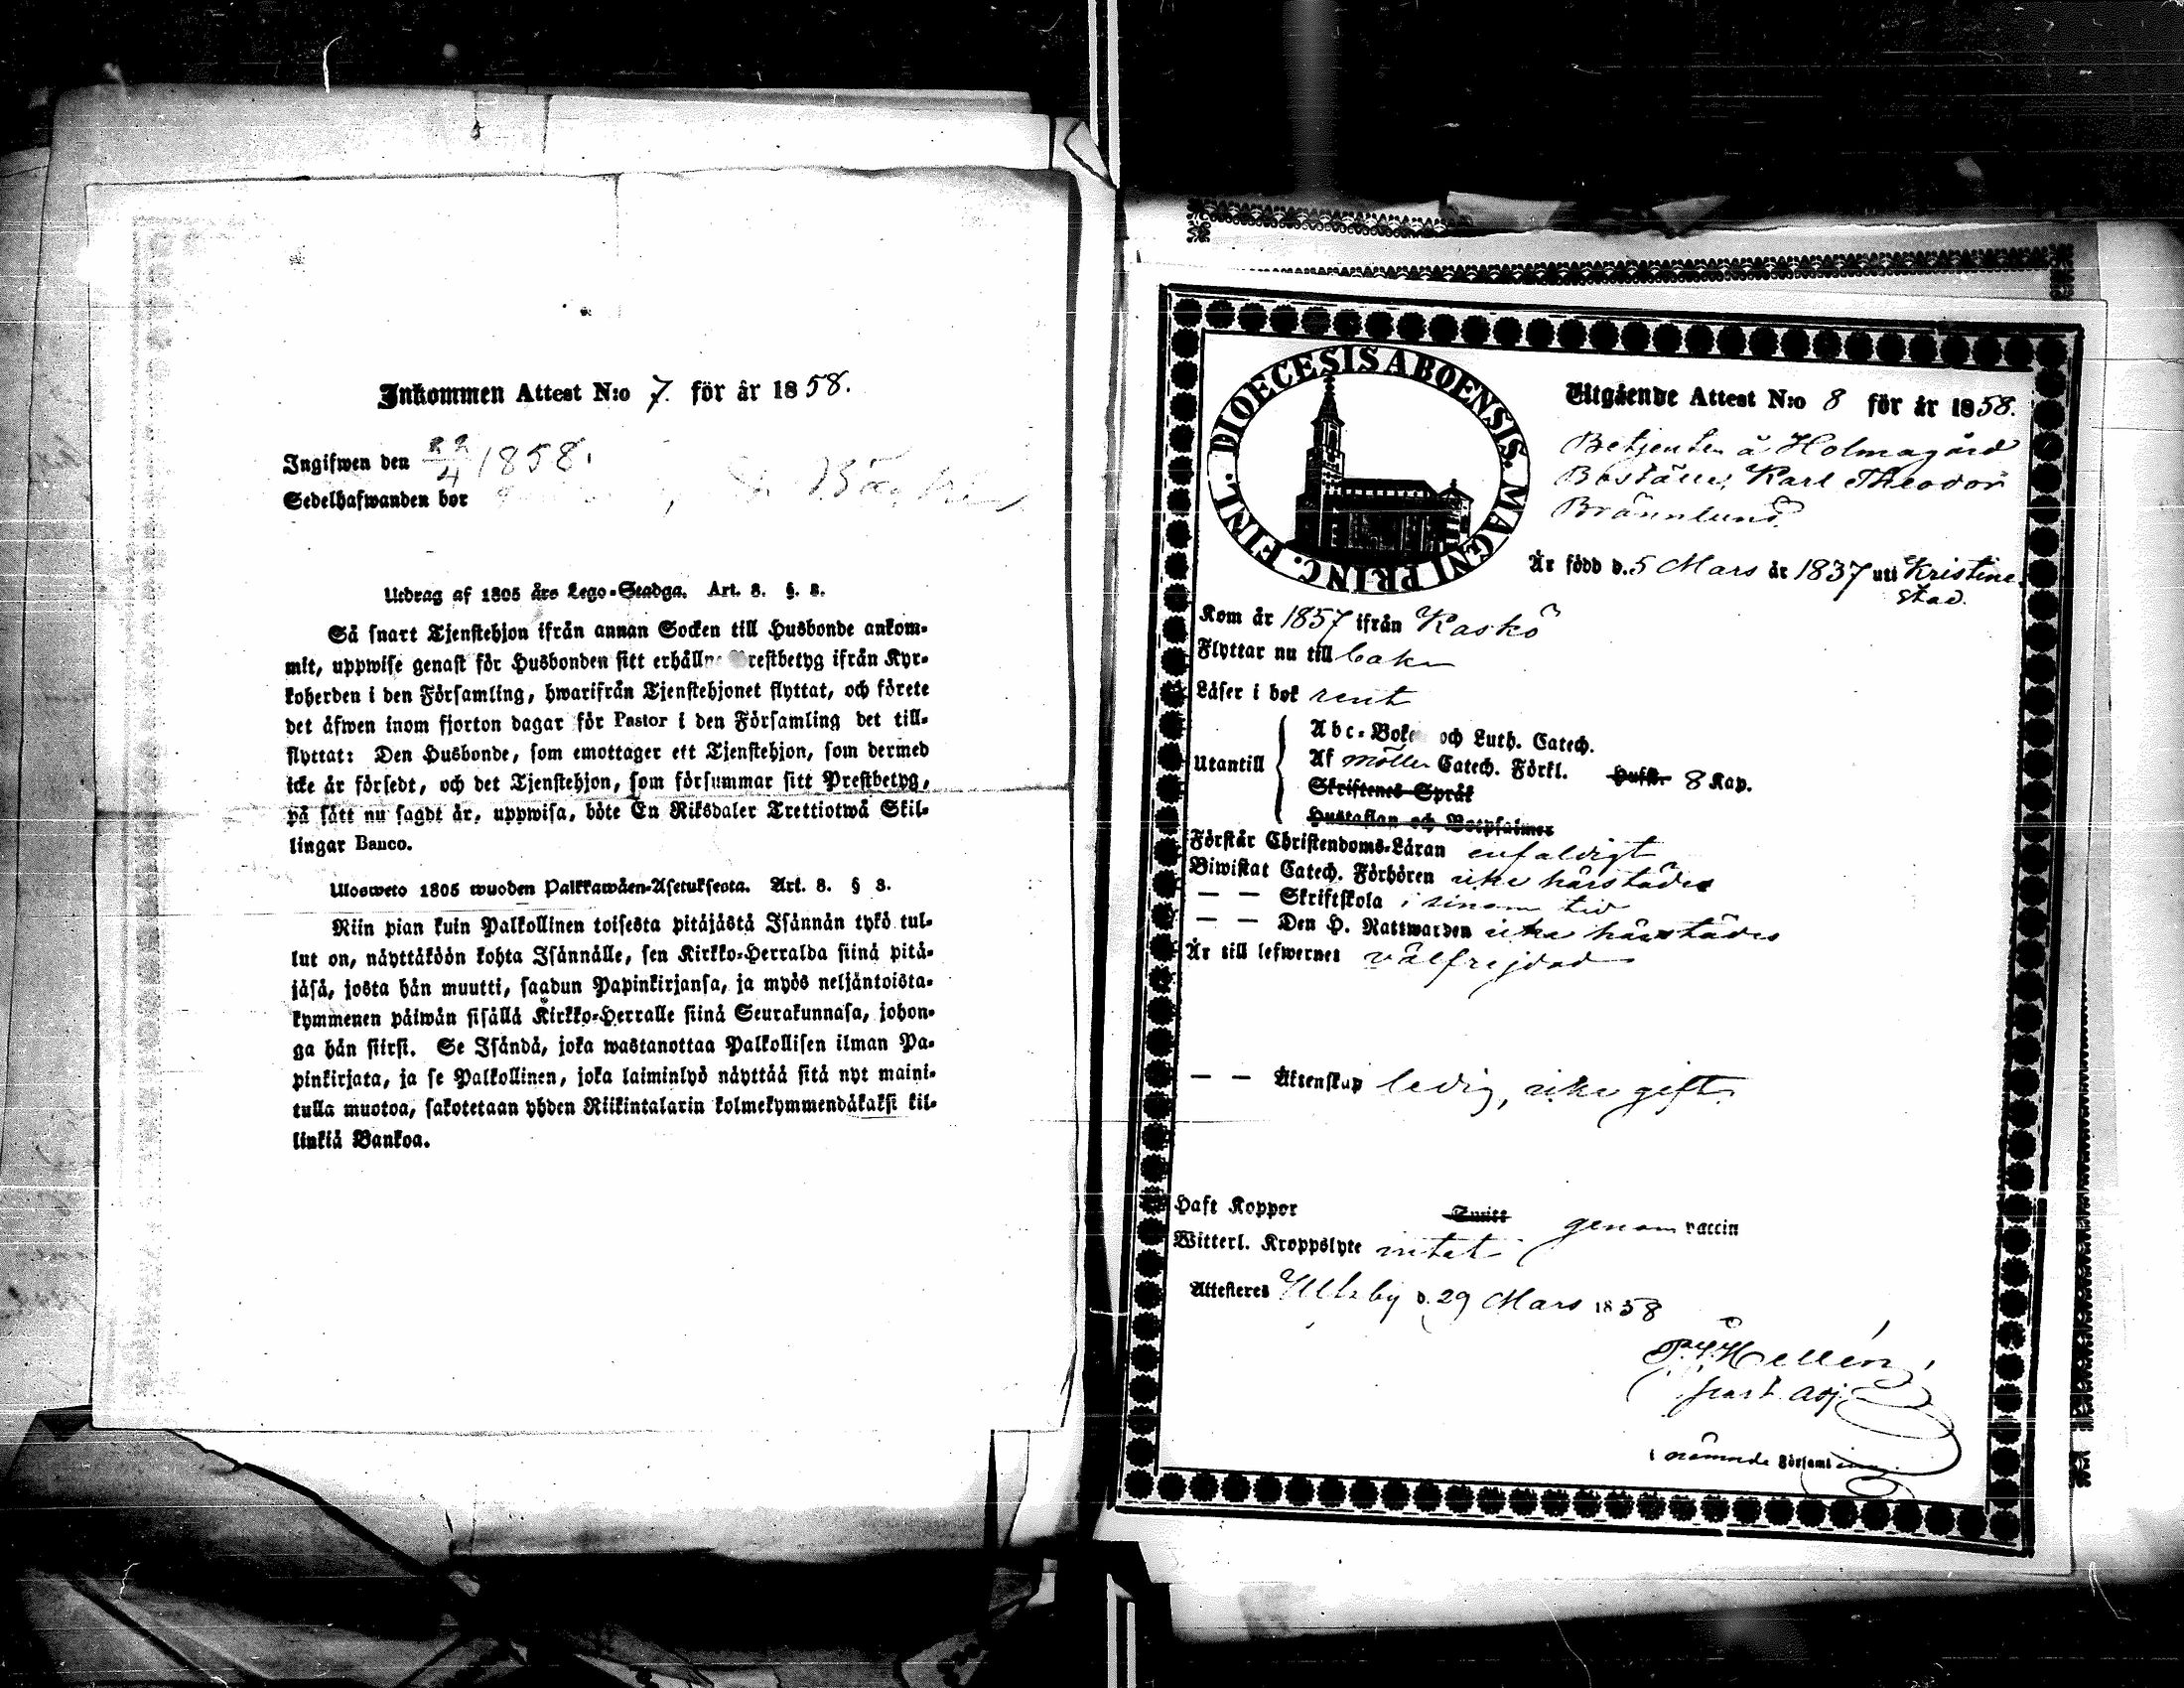 Inkommen Attest N:o 7. för år 1858.
Ingifwen den 22/4 1858.
Sedelhafwanden bor
Utdrag af 1805 års Lego-Stadga. Art. 8. §. 8.
Så snart Tjenstehjon ifrån annan Socken till Husbonde ankom-
mit, uppwise genast för Husbonden sitt erhållne Prestbetyg ifrån Kyr-
koherden i den Församling, hwarifrån Tjenstehjonet flyttat, och förete
det äfwen inom fjorton dagar för Pastor i den Församling det till-
flyttat: Den Husbonde, som emottager ett Tjenstehjon, som dermed
icke är försedt, och det Tjenstehjon, som försummar sitt Prestbetyg,
på sätt nu sagdt är, uppwisa, böte En Riksdaler Trettiotwå Skil-
lingar Banco.
Ulosweto 1805 wuoden Palkkawäen-Asetuksesta. Art. 8. § 8.
Niin pian kuin Palkollinen toisesta pitäjästä Isännän tykö tul-
lut on, näyttäköön kohta Isännälle, sen Kirkko-Herralda siinä pitä-
jäsä, josta hän muutti, saadun Papinkirjansa, ja myös neljäntoista-
kymmenen päiwän sisällä Kirkko-Herralle siinä Seurakunnasa, johon-
ga hän siirsi. Se Isändä, joka wastanottaa Palkollisen ilman Pa-
pinkirjata, ja se Palkollinen, joka laiminlyö näyttää sitä nyt maini-
tulla muotoa, sakotetaan yhden Riikintalarin kolmekymmendäkaksi kil-
linkiä Bankoa.
DIOECESIS ABOENSIS. MAGNI PRINC. FINL.
Utgående Attest N:o 8 för år 1858.
Betjenten å Holmagård
Boställe, Karl Theodor
Brännlund
Är född d. 5 Mars år 1837 uti Kristine-
stad.
Kom år 1857 ifrån Kaskö
Flyttar nu till baka
Läser i bok rent
Utantill
Abc-Boken och Luth. Catech.
Af Möllers Catech. Förkl. Hufst. 8 Kap.
Skriftenes Språk
Hustaflan och Botpsalmer
Förstår Christendoms-Läran enfaldigt
Biwistat Catech. Förhören icke härstädes
— — Skriftskola i sinom tid
— — Den H. Nattwarden icke härstädes
Är till lefwernet välfrejdad
— — Äktenskap ledig, icke gift.
Haft Koppor genom vaccin
Witterl. Kroppslyte intet
Attesteres Ulfsby d. 29 Mars 1858
Hellén
past. adj.
i nämnde Församling.